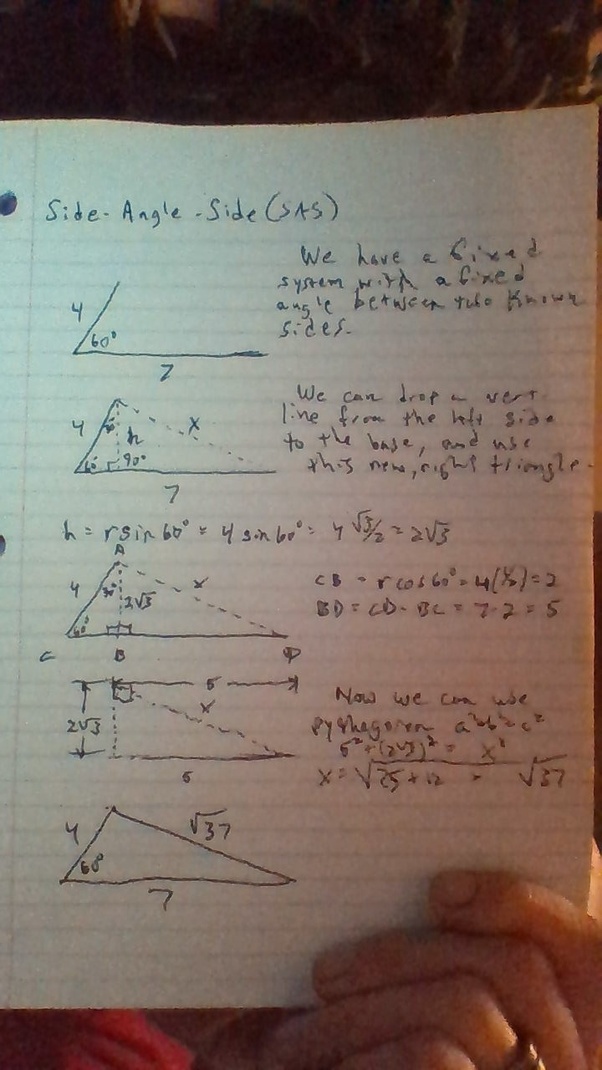 Side-Angle-Side (SAS)
We have a fixed
system with a fixed
angle between two known
sides.
4
60°
7
We can drop a vert
line from the left side
to the base, and use
this new, right triangle.
4
x
h
60°
90°
7
h = r sin 60° = 4 sin 60° = 4 √3/2 = 2√3
A
4
x
30°
2√3
60°
C B D
CB = r cos 60° = 4(1/2) = 2
BD = CD - BC = 7-2 = 5
5
x
2√3
5
Now we can use
a²+b²=c²
5² + (2√3)² = x²
x = √25+12 = √37
4
√37
60°
7